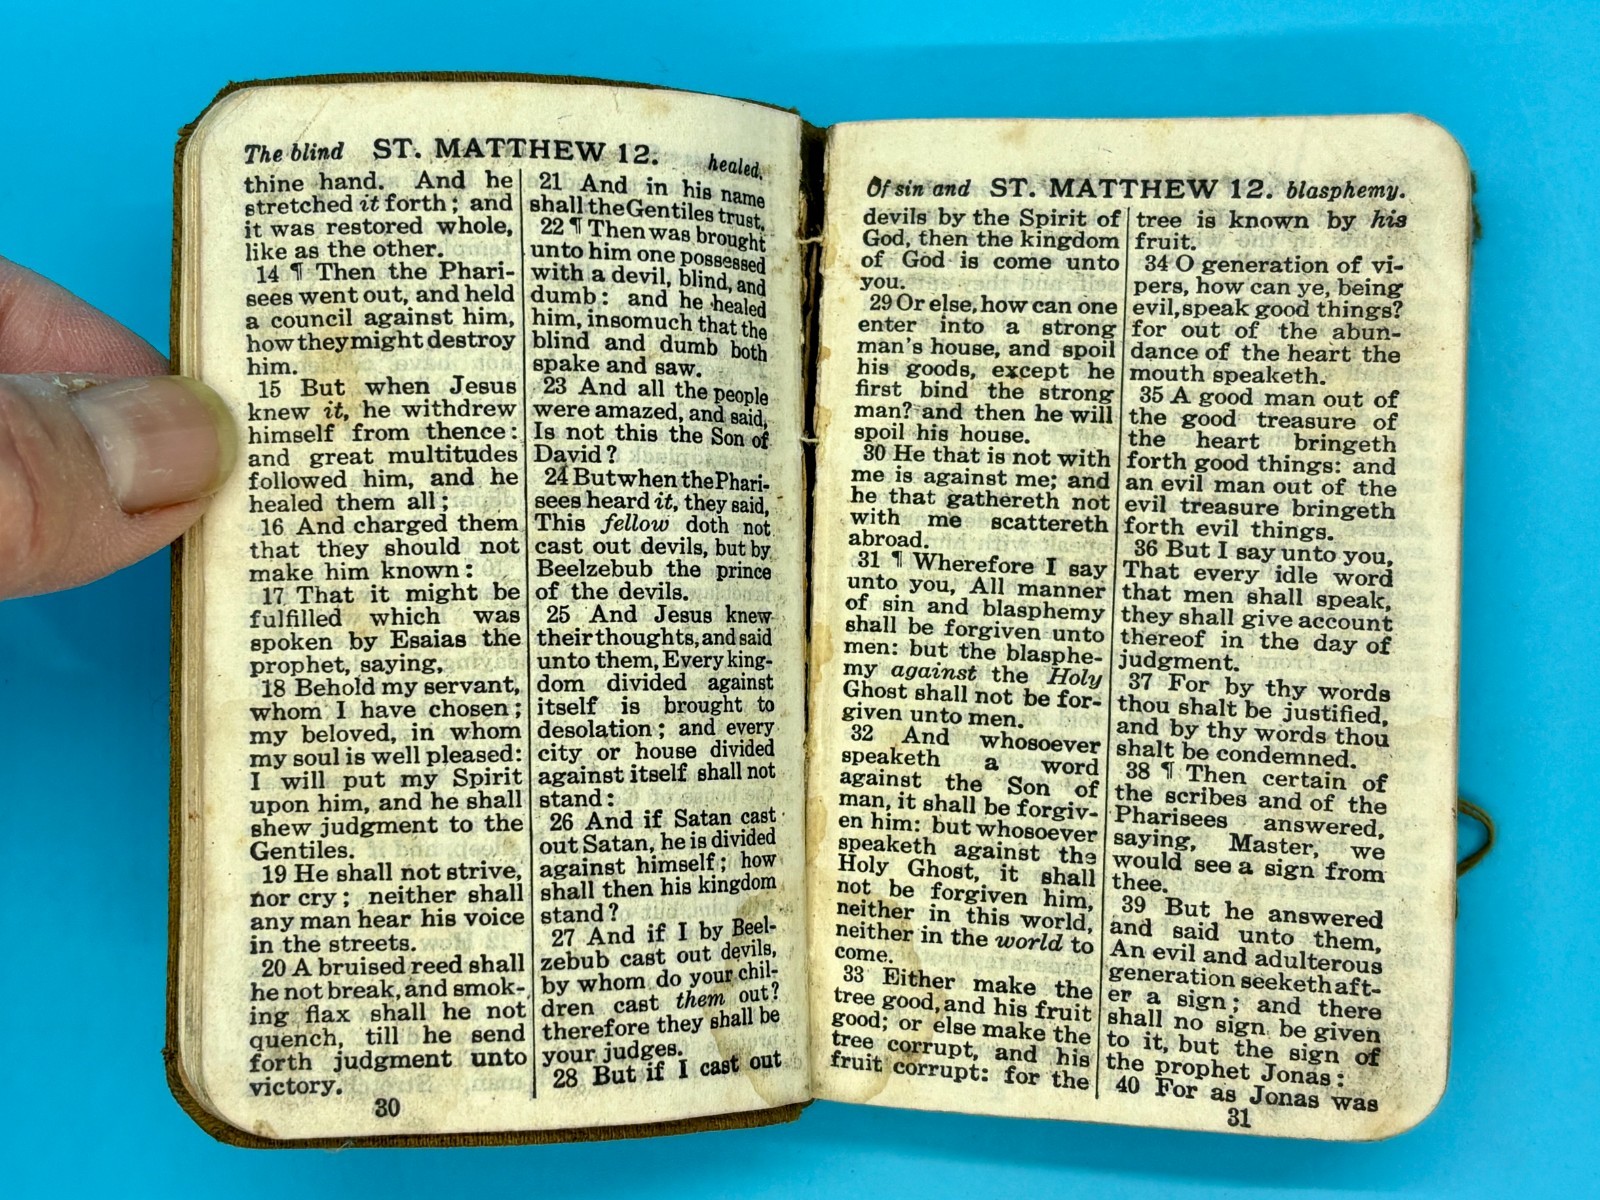 The blind ST. MATTHEW 12. healed.
thine hand. And he
stretched it forth; and
it was restored whole,
like as the other.
14 ¶ Then the Phari-
sees went out, and held
a council against him,
how they might destroy
him.
15 But when Jesus
knew it, he withdrew
himself from thence:
and great multitudes
followed him, and he
healed them all;
16 And charged them
that they should not
make him known:
17 That it might be
fulfilled which was
spoken by Esaias the
prophet, saying,
18 Behold my servant,
whom I have chosen;
my beloved, in whom
my soul is well pleased:
I will put my Spirit
upon him, and he shall
shew judgment to the
Gentiles.
19 He shall not strive,
nor cry; neither shall
any man hear his voice
in the streets.
20 A bruised reed shall
he not break, and smok-
ing flax shall he not
quench, till he send
forth judgment unto
victory.
21 And in his name
shall the Gentiles trust.
22 ¶ Then was brought
unto him one possessed
with a devil, blind, and
dumb: and he healed
him, insomuch that the
blind and dumb both
spake and saw.
23 And all the people
were amazed, and said,
Is not this the Son of
David?
24 But when the Phari-
sees heard it, they said,
This fellow doth not
cast out devils, but by
Beelzebub the prince
of the devils.
25 And Jesus knew
their thoughts, and said
unto them, Every king-
dom divided against
itself is brought to
desolation; and every
city or house divided
against itself shall not
stand:
26 And if Satan cast
out Satan, he is divided
against himself; how
shall then his kingdom
stand?
27 And if I by Beel-
zebub cast out devils,
by whom do your chil-
dren cast them out?
therefore they shall be
your judges.
28 But if I cast out
30
Of sin and ST. MATTHEW 12. blasphemy.
devils by the Spirit of
God, then the kingdom
of God is come unto
you.
29 Or else, how can one
enter into a strong
man's house, and spoil
his goods, except he
first bind the strong
man? and then he will
spoil his house.
30 He that is not with
me is against me; and
he that gathereth not
with me scattereth
abroad.
31 ¶ Wherefore I say
unto you, All manner
of sin and blasphemy
shall be forgiven unto
men: but the blasphe-
my against the Holy
Ghost shall not be for-
given unto men.
32 And whosoever
speaketh a word
against the Son of
man, it shall be forgiv-
en him: but whosoever
speaketh against the
Holy Ghost, it shall
not be forgiven him,
neither in this world,
neither in the world to
come.
33 Either make the
tree good, and his fruit
good; or else make the
tree corrupt, and his
fruit corrupt: for the
tree is known by his
fruit.
34 O generation of vi-
pers, how can ye, being
evil, speak good things?
for out of the abun-
dance of the heart the
mouth speaketh.
35 A good man out of
the good treasure of
the heart bringeth
forth good things: and
an evil man out of the
evil treasure bringeth
forth evil things.
36 But I say unto you,
That every idle word
that men shall speak,
they shall give account
thereof in the day of
judgment.
37 For by thy words
thou shalt be justified,
and by thy words thou
shalt be condemned.
38 ¶ Then certain of
the scribes and of the
Pharisees answered,
saying, Master, we
would see a sign from
thee.
39 But he answered
and said unto them,
An evil and adulterous
generation seeketh aft-
er a sign; and there
shall no sign be given
to it, but the sign of
the prophet Jonas:
40 For as Jonas was
31